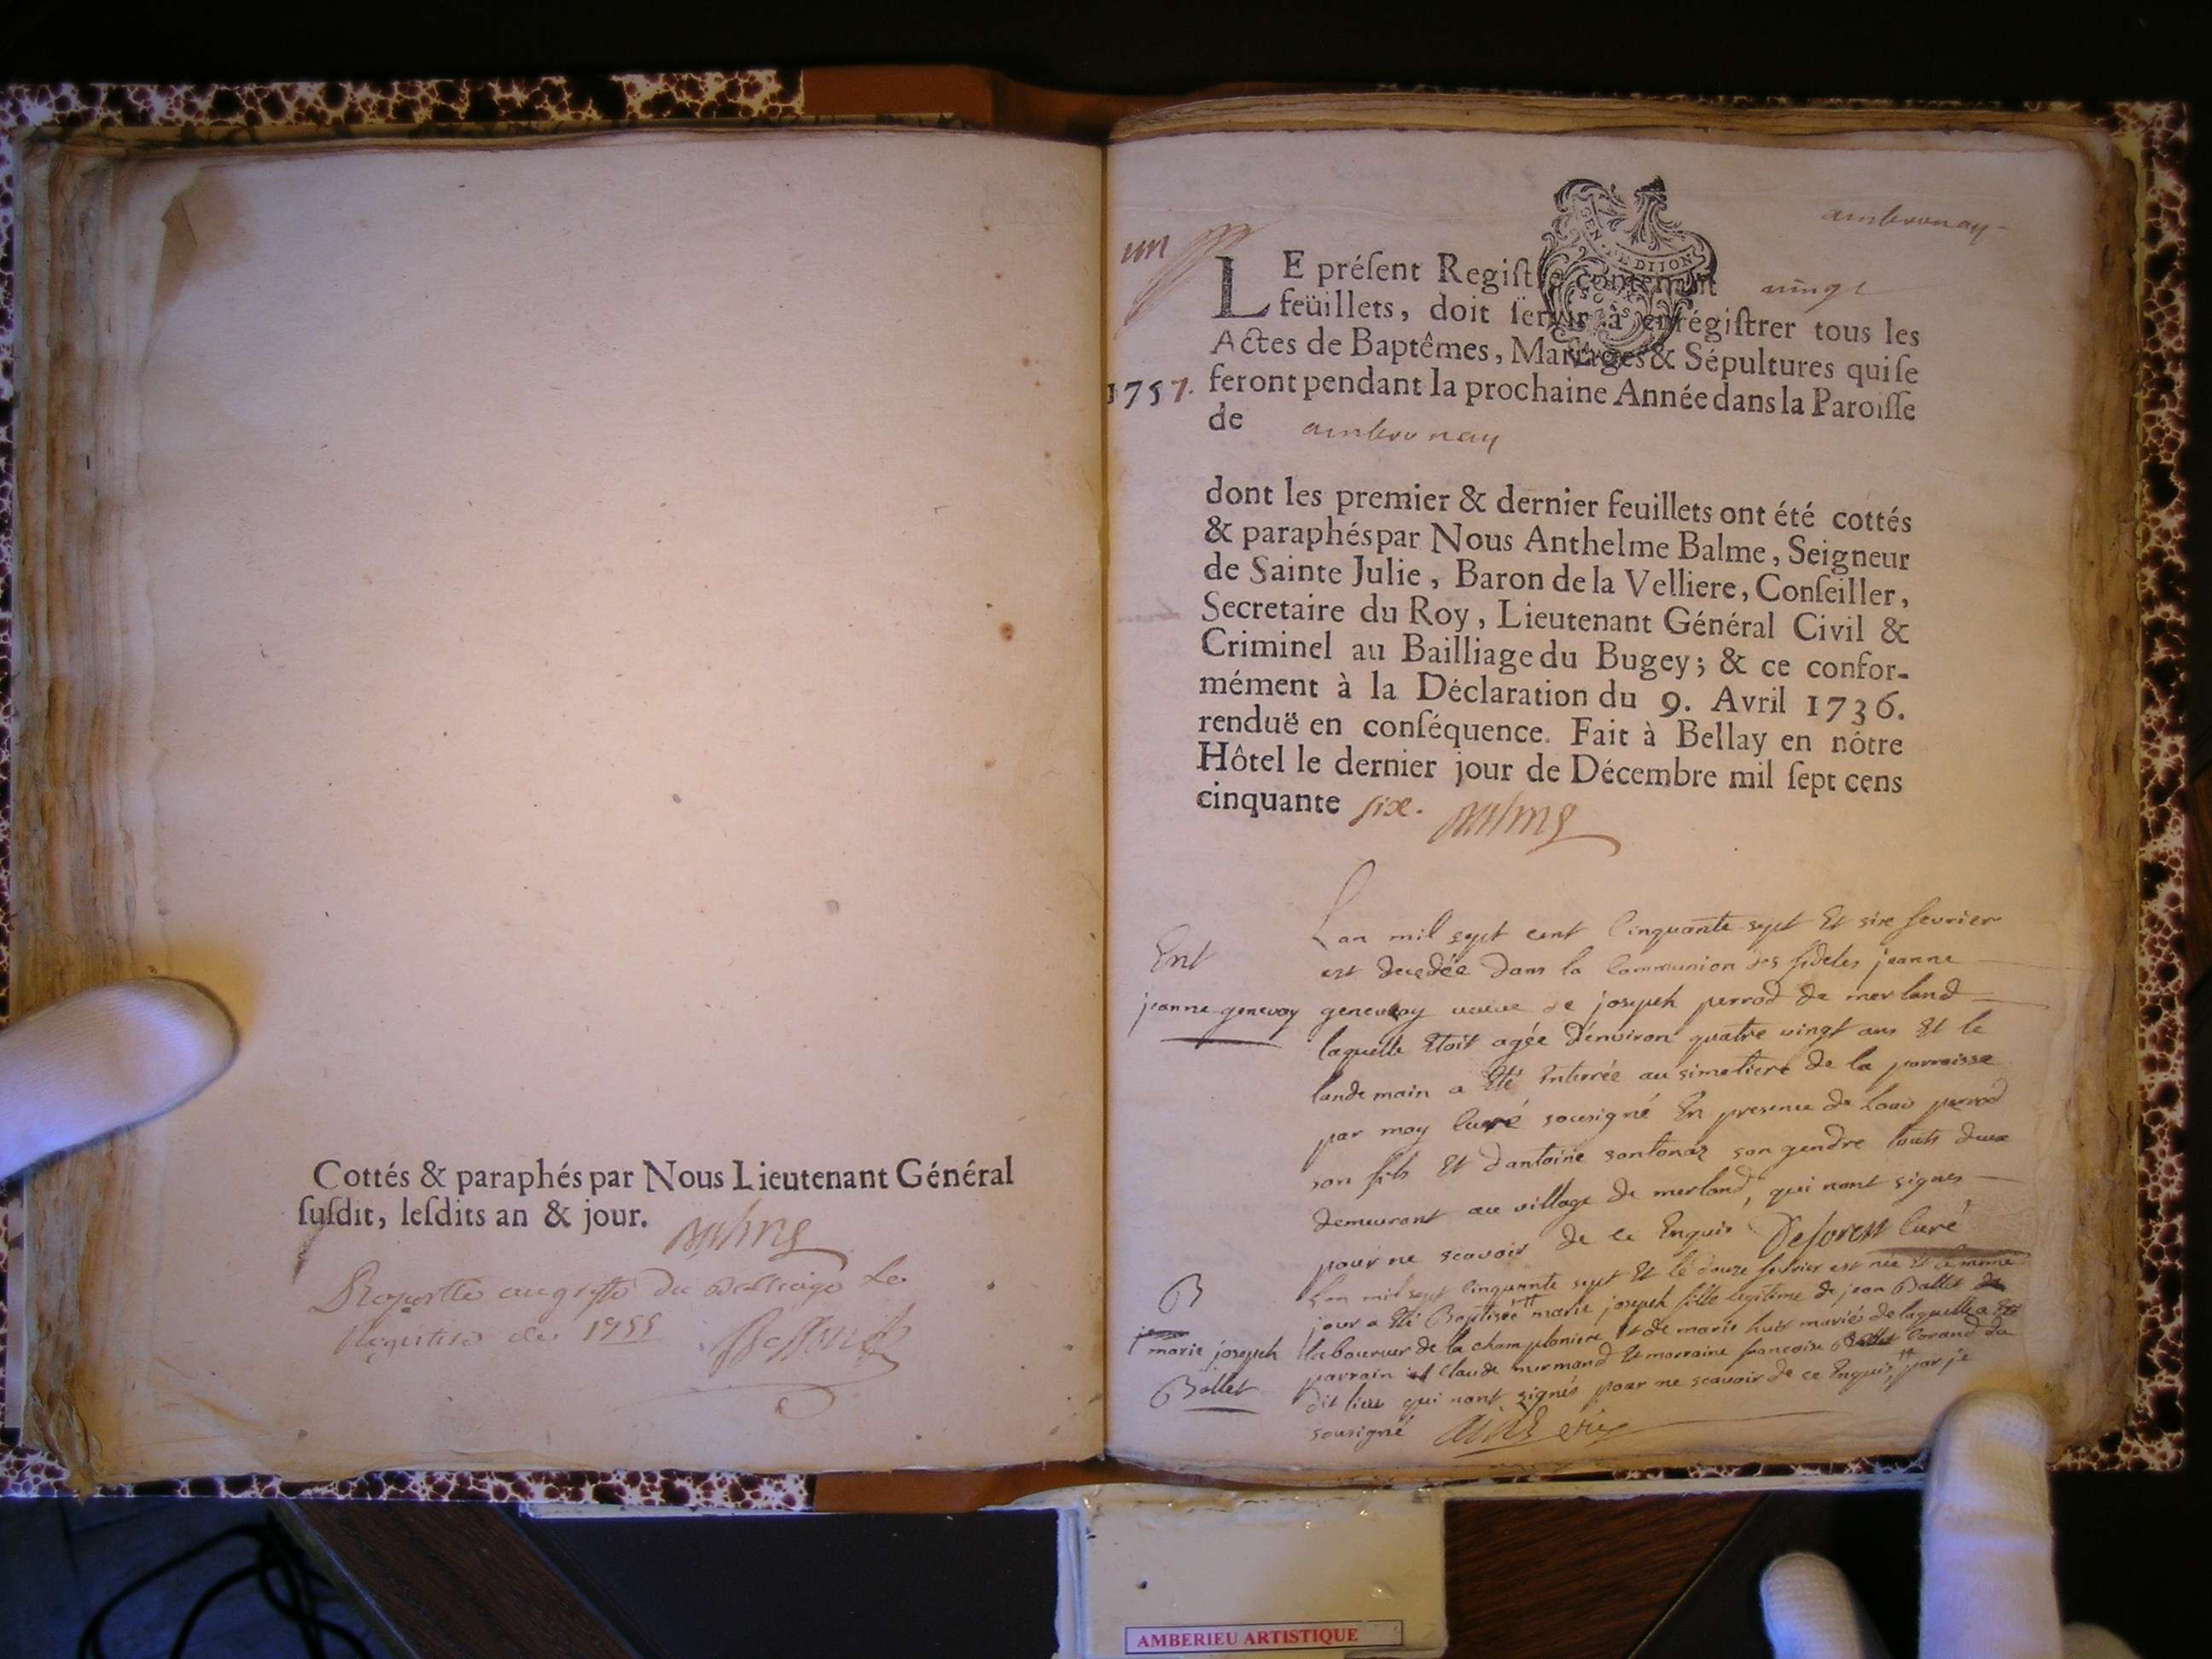 Cottés & paraphés par Nous Lieutenant Général
ſuſdit, leſdits an & jour.
Balme
ambronay
un
GEN. DE DIJON
LE préſent Regiſtre contenant vingt
feüillets, doit ſervir à enrégiſtrer tous les
Actes de Baptêmes, Mariages & Sépultures qui ſe
1757. feront pendant la prochaine Année dans la Paroiſſe
de ambronay
dont les premier & dernier feuillets ont été cottés
& paraphés par Nous Anthelme Balme, Seigneur
de Sainte Julie, Baron de la Velliere, Conſeiller,
Secretaire du Roy, Lieutenant Général Civil &
Criminel au Bailliage du Bugey; & ce confor-
mément à la Déclaration du 9. Avril 1736.
renduë en conſéquence. Fait à Bellay en nôtre
Hôtel le dernier jour de Décembre mil ſept cens
cinquante six. Balme
Ent
jeanne genevay
Lan mil sept cent Cinquante sept Et sixe fevrier
est decedée dans la Communion des fideles jeanne
genevay veuve de joseph perrod de merland
laquelle Etoit agée d'environ quatre vingt ans Et le
landemain a Eté Enterrée au simetiere de la parroisse
par moy Curé sousigné En presence de Louis perrod
son fils Et dantoine sontonaz son gendre touts deux
demeurant au village de merland, qui nont signes
pour ne scavoir de ce Enquis Curé
B
marie joseph
Ballet
Lan mil sept Cinquante sept Et le douze fevrier est née Et le meme
jour a Eté Baptisée marie joseph fille legitime de jean Ballet
laboureur de la championiere Et de marie huis mariés de laquelle a Eté
parrain Claude murmand Et marraine francoise lorand du
dit lieu qui nont signés pour ne scavoir de ce Enquis par je
sousigné
AMBERIEU ARTISTIQUE